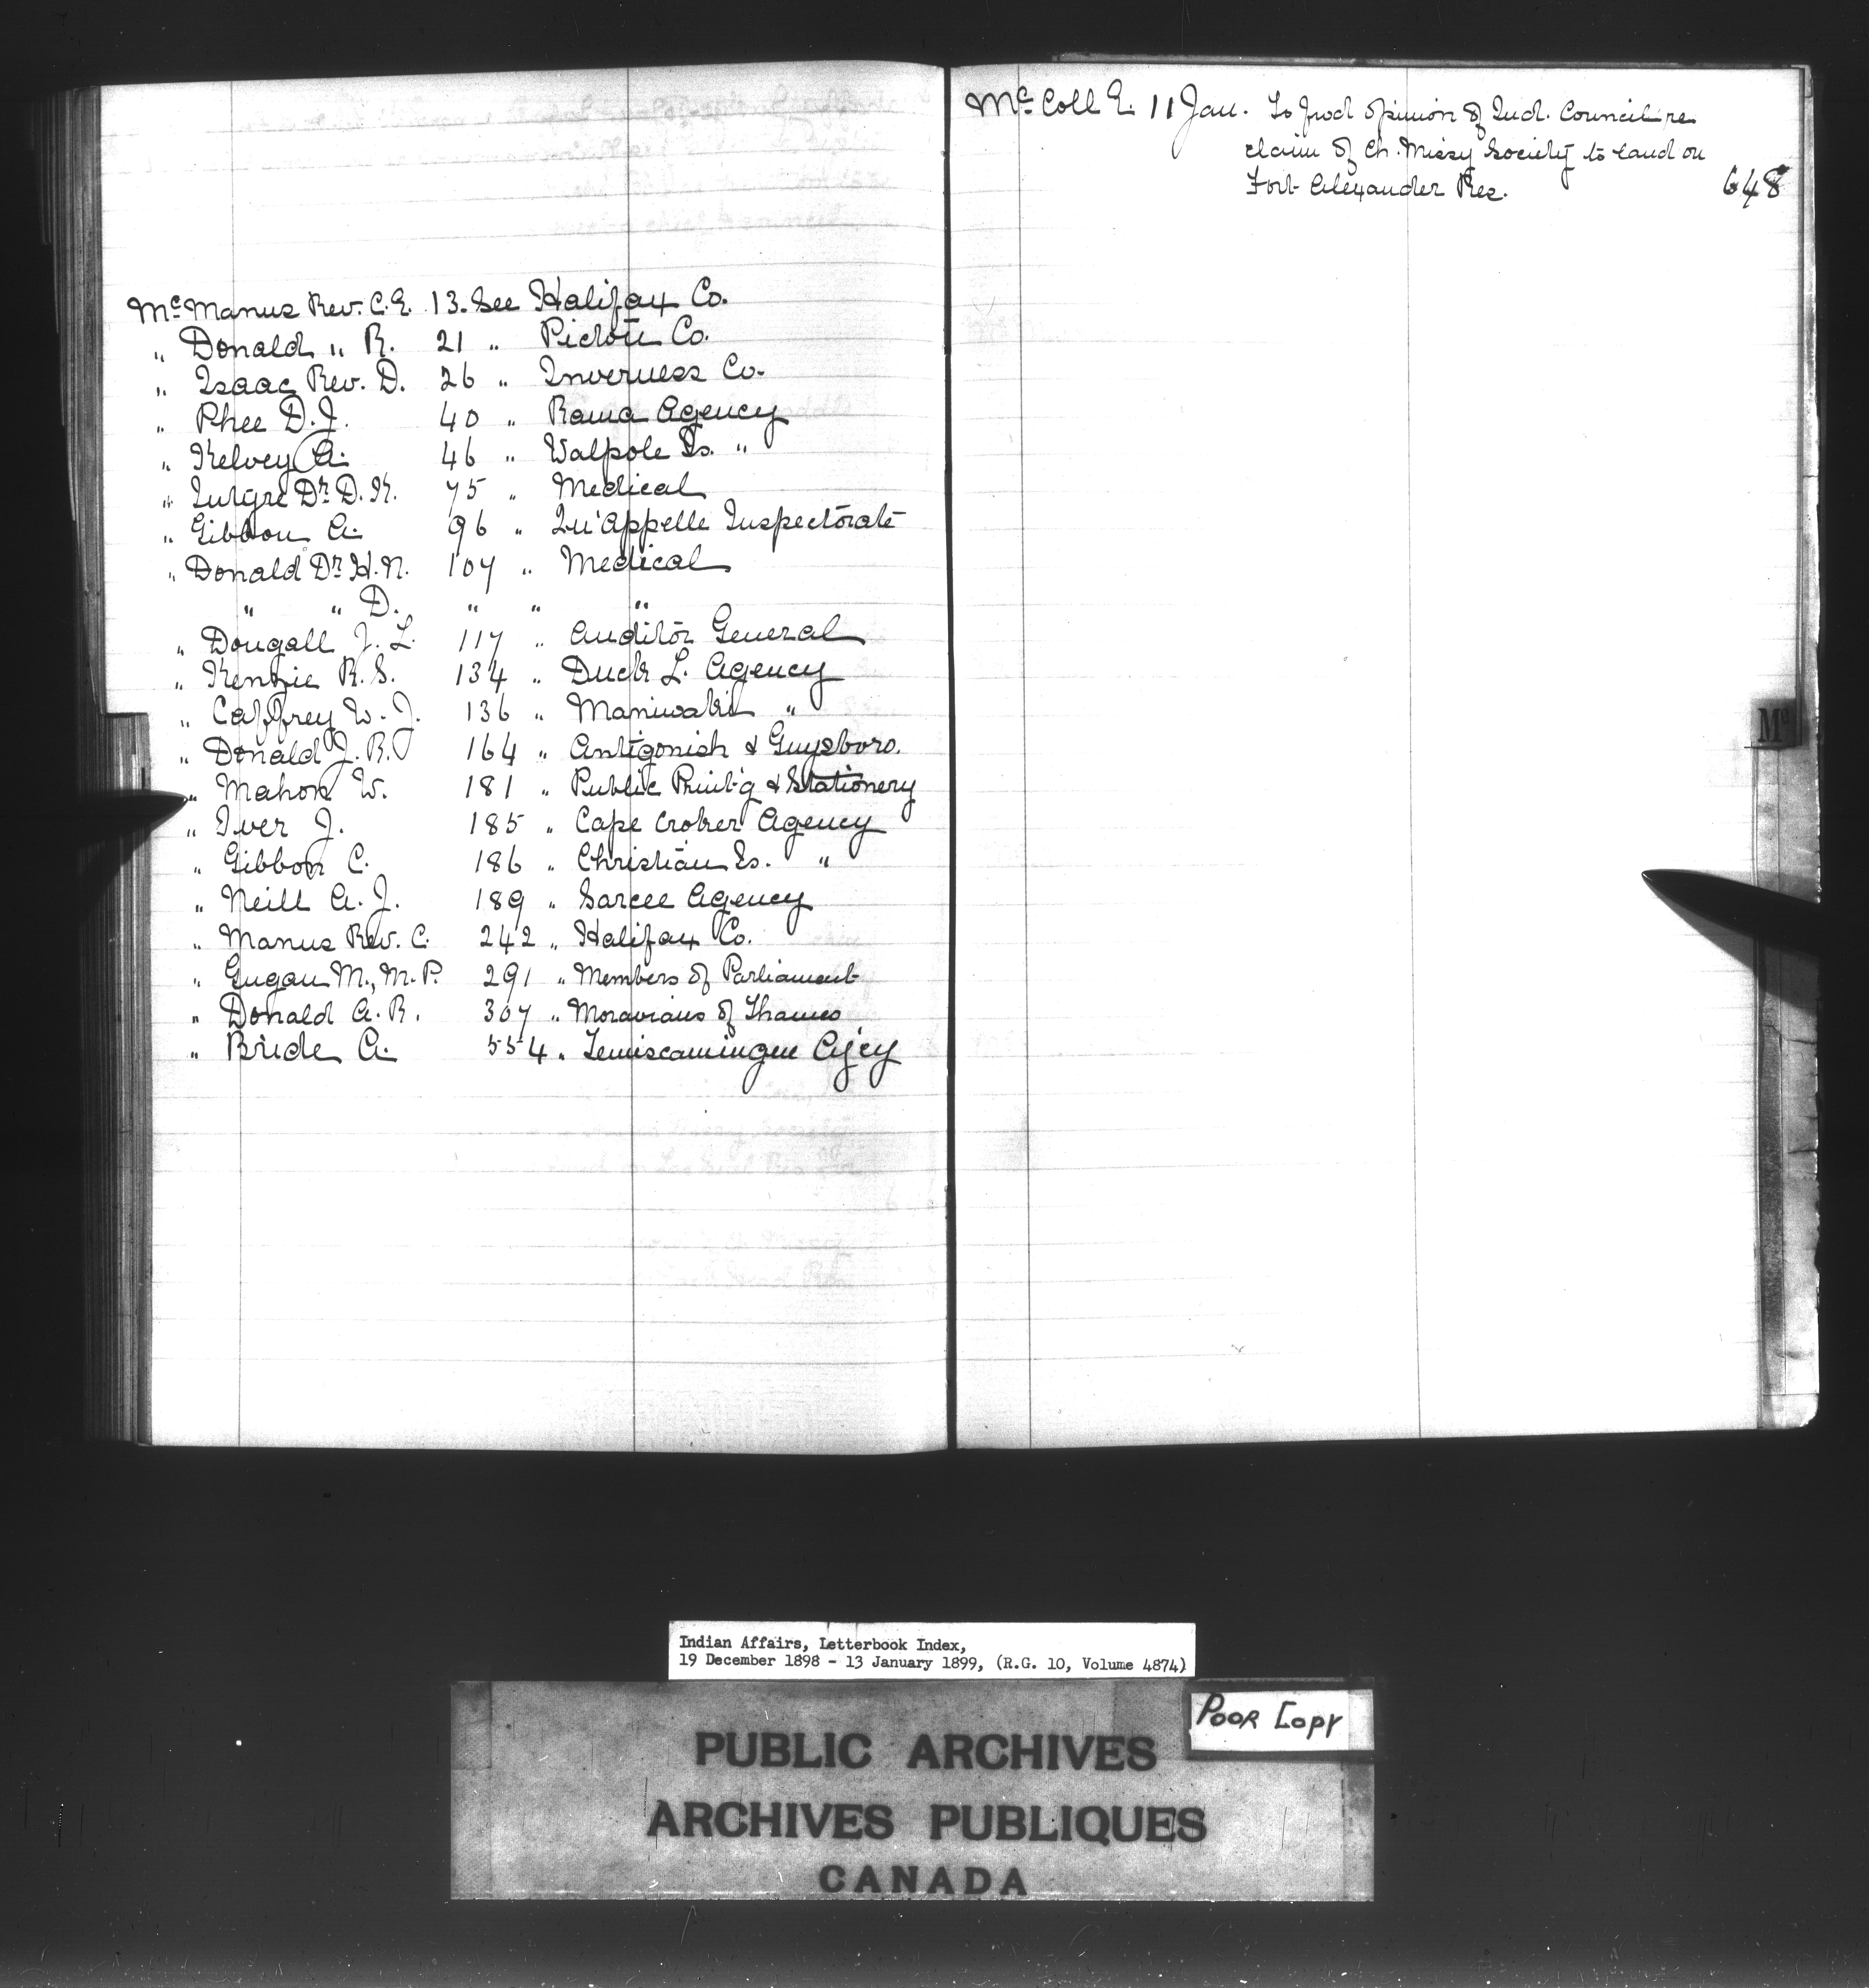 Mc Manus Rev. C. E. 13. See Halifax Co.
" Donald " R. 21 " Pictou Co.
" Isaac Rev. D. 26 " Inverness Co.
" Phee D. J. 40 " Rama Agency
" Kelvey A. 46 " Walpole Is. "
" Intyre Dr. D. K. 75 " Medical
" Gibbon A. 96 " Qu'Appelle Inspectorate
" Donald Dr. H. N. 107 " Medical
" " D. " " "
" Dougall J. L. 117 " Auditor General
" Kenzie R. S. 134 " Duck L. Agency
" Caffrey W. J. 136 " Maniwaki "
" Donald J. R. 164 " Antigonish & Guysboro.
" Mahon W. 181 " Public Print'g & Stationery
" Iver J. 185 " Cape Croker Agency
" Gibbon C. 186 " Christian Is. "
" Neill A. J. 189 " Sarcee Agency
" Manus Rev. C. 242 " Halifax Co.
" Gugan M., M.P. 291 " Members of Parliament
" Donald A. R. 307 " Moravians of Thames
" Bride A. 554 " Temiscamingue Ag'cy
Mc Coll E. 11 Jan. To opinion of Ind. Council re
claim of Ch. Missy Society to land on
Fort Alexander Res. 648
Mc
Indian Affairs, Letterbook Index,
19 December 1898 - 13 January 1899, (R.G. 10, Volume 4874)
Poor Copy
PUBLIC ARCHIVES
ARCHIVES PUBLIQUES
CANADA